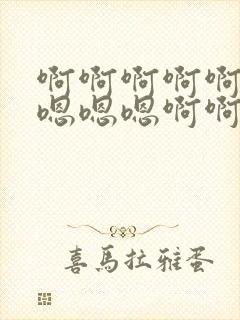 啊啊啊啊啊
嗯嗯嗯啊啊
喜馬拉雅蛋